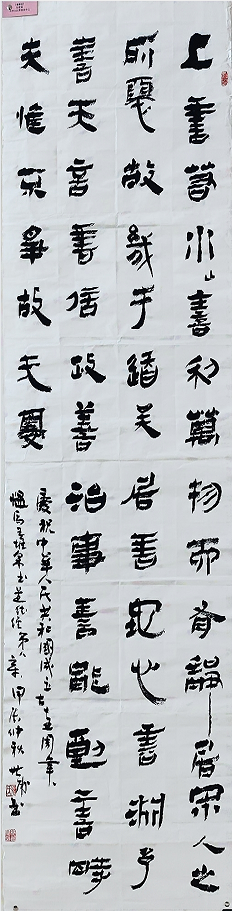 上善若水〻善利萬物而有靜居眾人之
所惡故幾於道矣居善地心善淵予
善天言善信政善治事善能動善時
夫惟不爭故无憂
慶祝中華人民共和國成立七十五周年
馬王堆帛書道德經第八章甲辰仲秋書